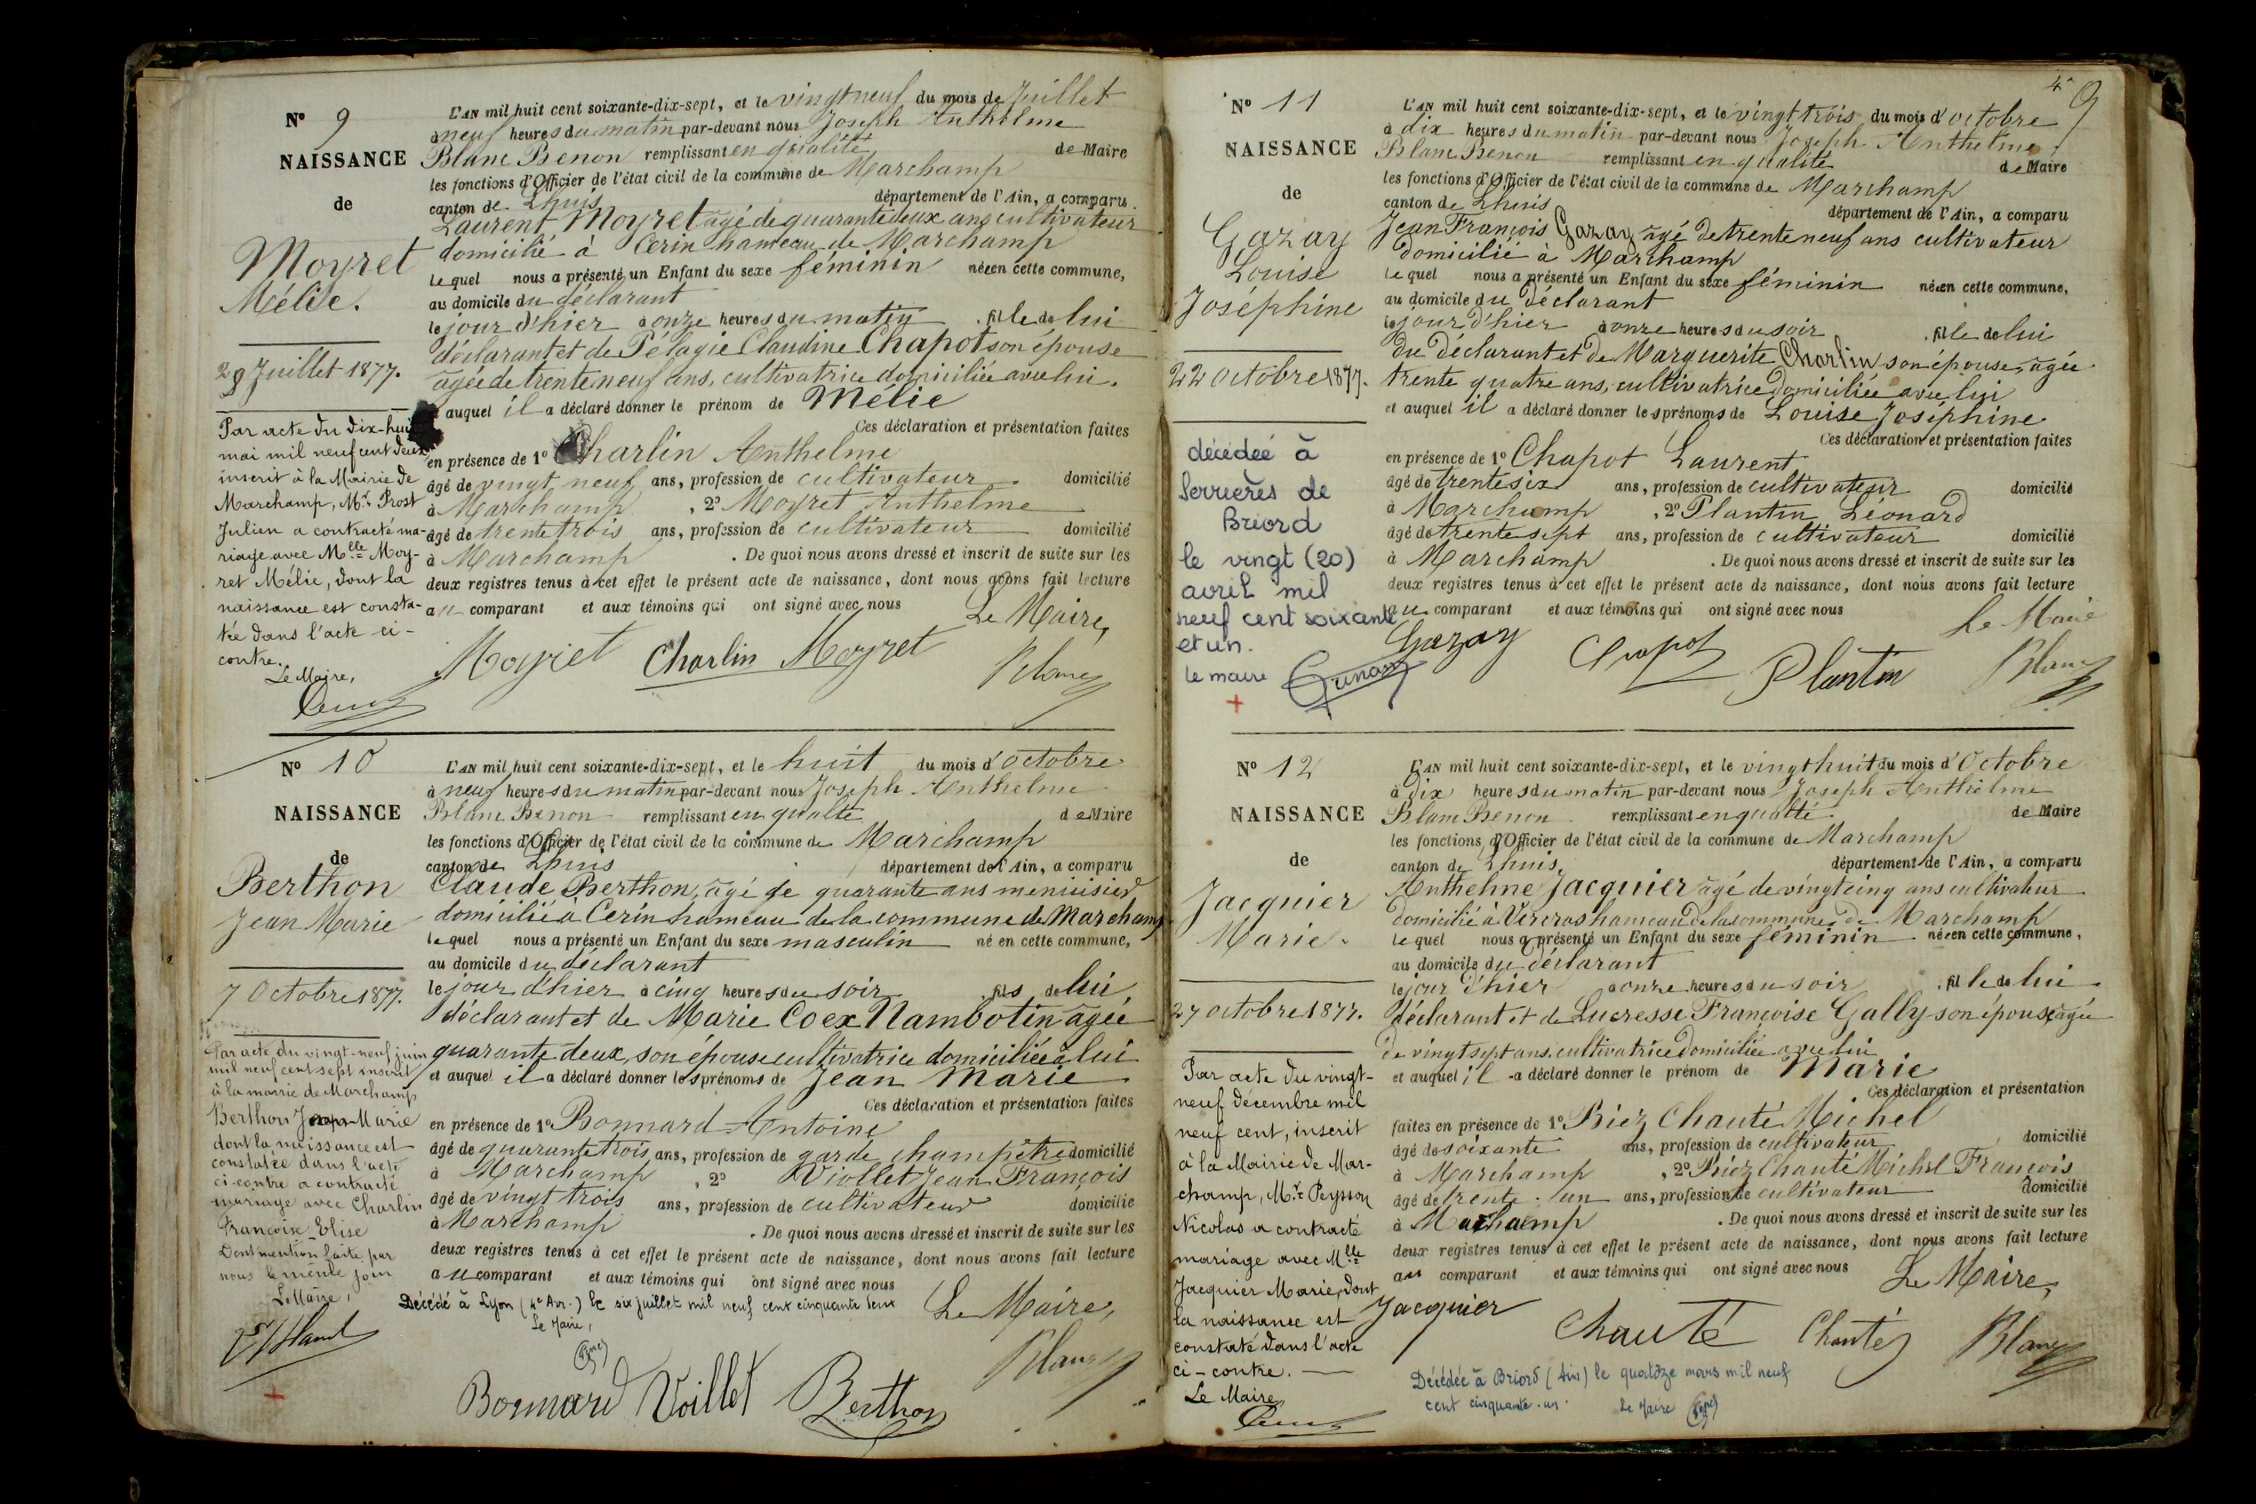 N° 9
NAISSANCE
de
Moyret
Mélie.
29 Juillet 1877.
Par acte du dix-huit
mai mil neuf cent deux
inscrit à la Mairie de
Marchamp, Mr. Prost
Julien a contracté ma-
riage avec Mlle Moy-
ret Mélie, dont la
naissance est consta-
tée dans l'acte ci-
contre.
Le Maire,
L'AN mil huit cent soixante-dix-sept, et le vingt neuf du mois de Juillet
à neuf heures du matin par-devant nous Joseph Anthelme
Blanc Benon remplissant en qualité de Maire
les fonctions d'Officier de l'état civil de la commune de Marchamp
canton de Lhuis département de l'Ain, a comparu
Laurent Moyret agé de quarante deux ans cultivateur
domicilié à Cerin hameau de Marchamp
le quel nous a présenté un Enfant du sexe féminin née en cette commune,
au domicile du déclarant
le jour d'hier à onze heures du matin fille de lui
déclarant et de Pélagie Claudine Chapot son épouse
agée de trente neuf ans, cultivatrice domiciliée avec lui.
auquel il a déclaré donner le prénom de Mélie
Ces déclaration et présentation faites
en présence de 1° Charlin Anthelme
âgé de vingt neuf ans, profession de cultivateur domicilié
à Marchamp, 2° Moyret Anthelme
âgé de trente trois ans, profession de cultivateur domicilié
à Marchamp. De quoi nous avons dressé et inscrit de suite sur les
deux registres tenus à cet effet le présent acte de naissance, dont nous avons fait lecture
au comparant et aux témoins qui ont signé avec nous
Le Maire,
Moyret Charlin Moyret Blanc
N° 10
NAISSANCE
de
Berthon
Jean Marie
7 Octobre 1877.
Par acte du vingt-neuf juin
mil neuf cent sept inscrit
à la mairie de Marchamp
Berthon Jean Marie
dont la naissance est
constatée dans l'acte
ci-contre a contracté
mariage avec Charlin
Françoise Elise
Dont mention faite par
nous le même jour
Le Maire,
L'AN mil huit cent soixante-dix-sept, et le huit du mois d'Octobre
à neuf heures du matin par-devant nous Joseph Anthelme
Blanc Benon remplissant en qualté de Maire
les fonctions d'Officier de l'état civil de la commune de Marchamp
canton de Lhuis département de l'Ain, a comparu
Claude Berthon, agé de quarante ans menuisier
domicilié à Cerin hameau de la commune de Marchamp
le quel nous a présenté un Enfant du sexe masculin né en cette commune,
au domicile du déclarant
le jour d'hier à cinq heures du soir fils de lui
déclarant et de Marie Coex Nambotin agée
quarante deux, son épouse cultivatrice domiciliée à lui
et auquel il a déclaré donner les prénoms de Jean Marie
Ces déclaration et présentation faites
en présence de 1° Bonnard Antoine
âgé de quarante trois ans, profession de garde champêtre domicilié
à Marchamp, 2° Viollet Jean François
âgé de vingt trois ans, profession de cultivateur domicilié
à Marchamp. De quoi nous avons dressé et inscrit de suite sur les
deux registres tenus à cet effet le présent acte de naissance, dont nous avons fait lecture
au comparant et aux témoins qui ont signé avec nous
Décédé à Lyon (4e Arr.) le six juillet mil neuf cent cinquante deux
Le Maire,
Le Maire,
Bonnard Voillet Berthon Blanc
49
N° 11
NAISSANCE
de
Gazay
Louise
Joséphine
22 octobre 1877.
décédeé à
Serrières de
Briord
le vingt (20)
avril mil
neuf cent soixante
et un.
le maire
L'AN mil huit cent soixante-dix-sept, et le vingt trois du mois d'octobre
à dix heures du matin par-devant nous Joseph Anthelme
Blanc Benon remplissant en qualité de Maire
les fonctions d'Officier de l'état civil de la commune de Marchamp
canton de Lhuis département de l'Ain, a comparu
Jean François Gazay agé de trente neuf ans cultivateur
domicilié à Marchamp
le quel nous a présenté un Enfant du sexe féminin née en cette commune,
au domicile du Déclarant
le jour d'hier à onze heures du soir fille de lui
du déclarant et de Marguerite Charlin son épouse, agée
trente quatre ans, cultivatrice domiciliée avec lui
et auquel il a déclaré donner les prénoms de Louise Joséphine
Ces déclaration et présentation faites
en présence de 1° Chapot Laurent
âgé de trente six ans, profession de cultivateur domicilié
à Marchamp, 2° Plantin Léonard
âgé de trente sept ans, profession de cultivateur domicilié
à Marchamp. De quoi nous avons dressé et inscrit de suite sur les
deux registres tenus à cet effet le présent acte de naissance, dont nous avons fait lecture
au comparant et aux témoins qui ont signé avec nous
Le Maire
Gazay Chapot Plantin Blanc
N° 12
NAISSANCE
de
Jacquier
Marie.
27 octobre 1877.
Par acte du vingt-
neuf décembre mil
neuf cent, inscrit
à la Mairie de Mar-
champ, Mr. Peysson
Nicolas a contracté
mariage avec Mlle
Jacquier Marie, dont
la naissance est
constaté dans l'acte
ci-contre.
Le Maire
L'AN mil huit cent soixante-dix-sept, et le vingt huit du mois d'Octobre
à dix heures du matin par-devant nous Joseph Anthelme
Blanc Benon remplissant en qualté de Maire
les fonctions d'Officier de l'état civil de la commune de Marchamp
canton de Lhuis, département de l'Ain, a comparu
Anthelme Jacquier agé de vingt cinq ans cultivateur
domicilié à Vercras hameau de la commune de Marchamp
le quel nous a présenté un Enfant du sexe féminin née en cette commune,
au domicile du déclarant
le jour d'hier à onze heures du soir fille de lui
déclarant et de Lucresse Françoise Gally son épouse agée
de vingt sept ans cultivatrice domiciliée avec lui
et auquel il a déclaré donner le prénom de Marie
Ces déclaration et présentation
faites en présence de 1° Biez Chanté Michel
âgé de soixante ans, profession de cultivateur domicilié
à Marchamp, 2° Biez Chanté Michel François
âgé de trente un ans, profession de cultivateur domicilié
à Machamp. De quoi nous avons dressé et inscrit de suite sur les
deux registres tenus à cet effet le présent acte de naissance, dont nous avons fait lecture
au comparant et aux témoins qui ont signé avec nous
Le Maire,
Jacquier Chauté Chanté Blanc
Décédée à Briord (Ain) le quatorze mars mil neuf
cent cinquante-un. Le Maire